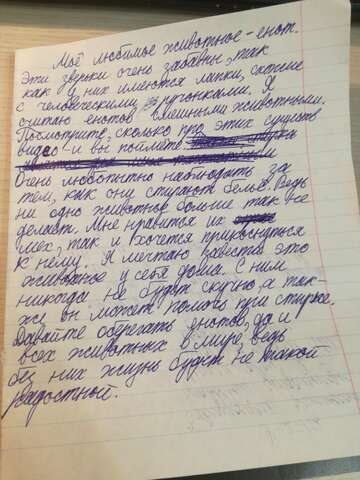 Моё любимое животное - енот.
Эти зверьки очень забавны, так
как у них имеются лапки, схожие
с человеческими ручонками. Я
считаю енотов смешными животными.
Посмотрите, сколько про этих существ
видео - и вы поймете
Очень любопытно наблюдать за
тем, как они стирают бельё. Ведь
ни одно животное больше так не
делает. Мне нравится их
мех, так и хочется прикоснуться
к нему. Я мечтаю завести это
животное у себя дома. С ним
никогда не будет скучно, а так-
же он может помочь при стирке.
Давайте оберегать енотов, да и
всех животных в мире, ведь
без них жизнь будет не такой
радостной.